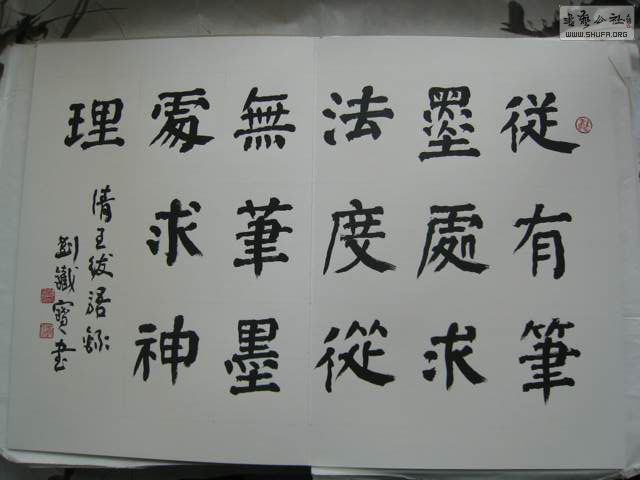 従有筆
墨處求
法度從
無筆墨
處求神
理
清王紱語錄
劉鐵寶书
書藝公社
WWW.SHUFA.ORG